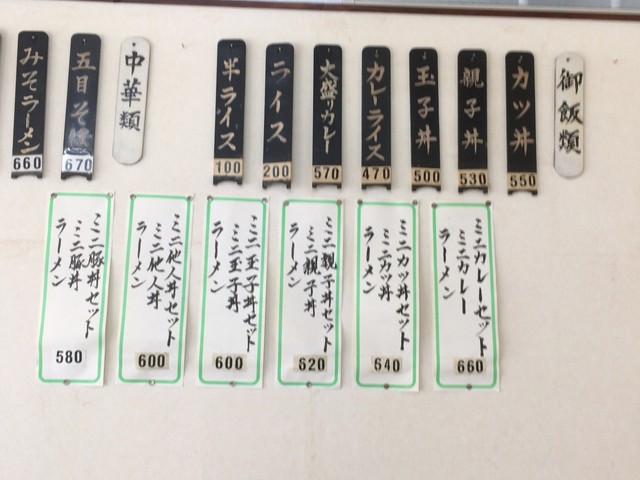 御飯類
カツ丼
550
親子丼
530
玉子丼
500
カレーライス
470
大盛りカレー
570
ライス
200
半ライス
100
中華類
五目そば
670
みそラーメン
660
ミニカレーセット
ミニカレー
ラーメン
660
ミニカツ丼セット
ミニカツ丼
ラーメン
640
ミニ親子丼セット
ミニ親子丼
ラーメン
620
ミニ玉子丼セット
ミニ玉子丼
ラーメン
600
ミニ他人丼セット
ミニ他人丼
ラーメン
600
ミニ豚丼セット
ミニ豚丼
ラーメン
580